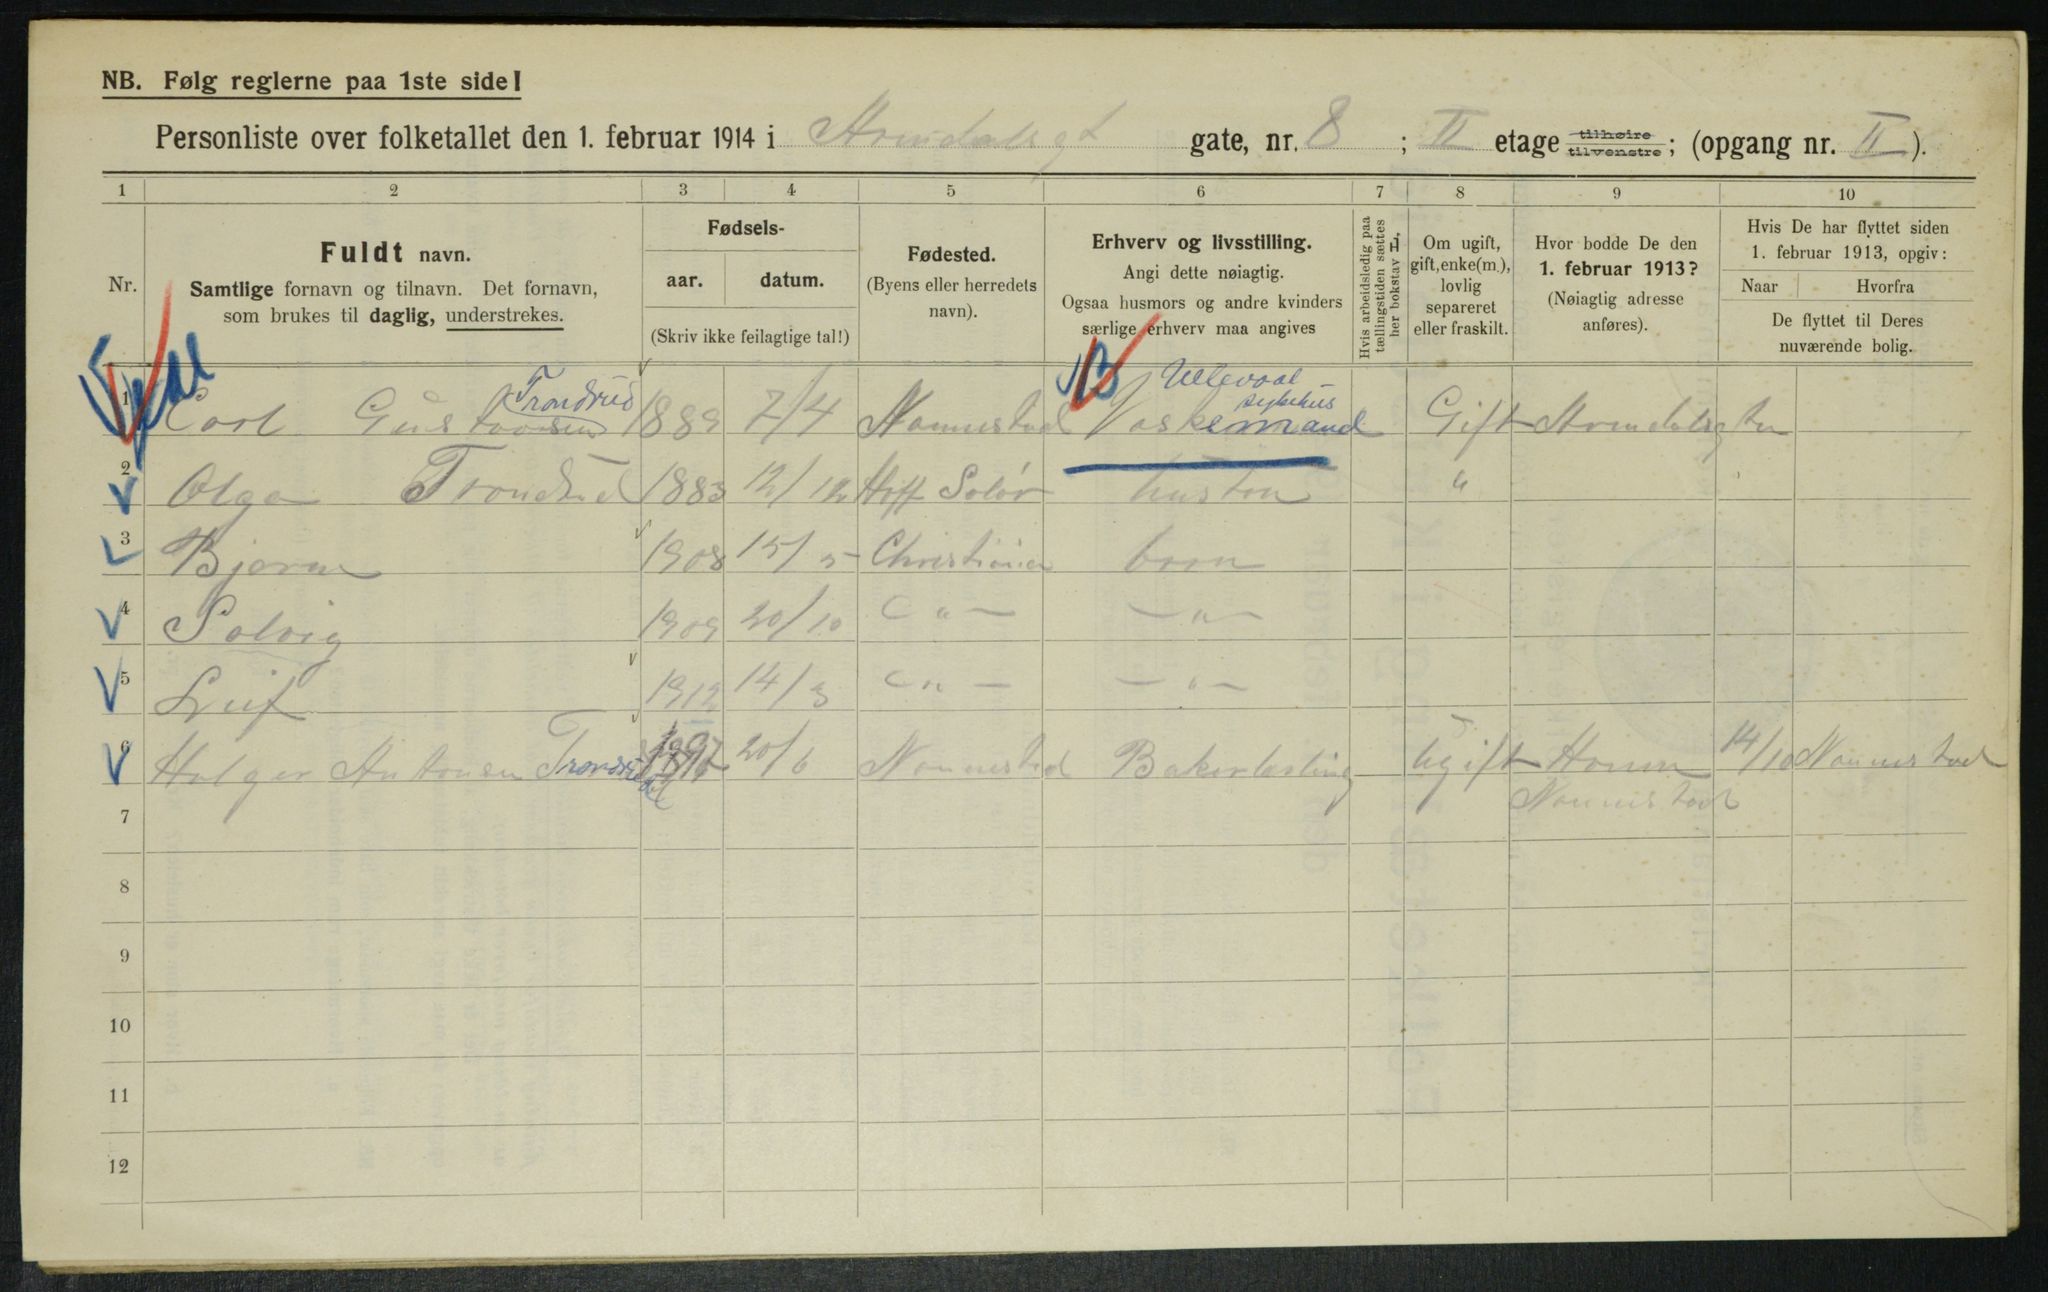 NB. Følg reglerne paa 1ste side!
Personliste over folketallet den 1. februar 1914 i Arendalsgt gate, nr. 8 ; II etage tilhøire tilvenstre ; (opgang nr. II ).
1 2 3 4 5 6 7 8 9 10
Nr.
Fuldt navn.
Samtlige fornavn og tilnavn. Det fornavn,
som brukes til daglig, understrekes.
Fødsels-
aar. datum.
(Skriv ikke feilagtige tal!)
Fødested.
(Byens eller herredets
navn).
Erhverv og livsstilling.
Angi dette nøiagtig.
Ogsaa husmors og andre kvinders
særlige erhverv maa angives
Hvis arbeidsledig paa
tællingstiden sættes
her bokstav L.
Om ugift,
gift, enke(m.),
lovlig
separeret
eller fraskilt.
Hvor bodde De den
1. februar 1913?
(Nøiagtig adresse
anføres).
Hvis De har flyttet siden
1. februar 1913, opgiv:
Naar Hvorfra
De flyttet til Deres
nuværende bolig.
Trondrud Ullevaal sykehus
1 Carl Gustavsen 1889 7/4 Nannestad Vaskemand Gift Arendalsgten
2 Olga Trondrud 1883 12/12 Hoff Solør hustru "
3 Bjarne 1908 15/5 Christiania barn
4 Solvig 1909 20/10 — " — — " —
5 Leif 1912 14/3 — " — — " —
6 Holger Antonsen Trondrud 1897 20/6 Nannestad Bakerlærling Ugift 14/10 Nannestad
Nannestad
7
8
9
10
11
12